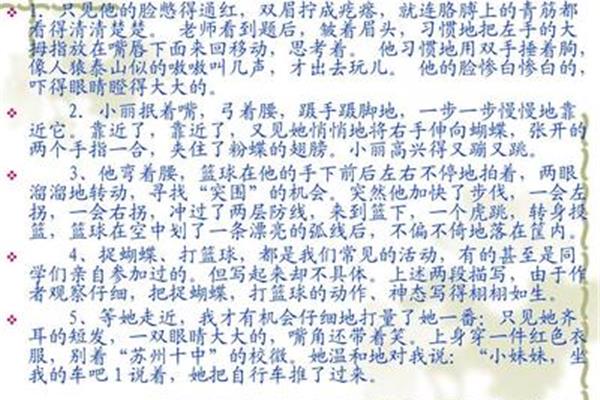 1. 只见他的脸憋得通红，双眉拧成疙瘩，就连胳膊上的青筋都
看得清清楚楚。 老师看到题后，皱着眉头，习惯地把左手的大
拇指放在嘴唇下面来回移动，思考着。 他习惯地用双手捶着胸，
像人猿泰山似的嗷嗷叫几声，才出去玩儿。 他的脸惨白惨白的，
吓得眼睛瞪得大大的。
2．小丽抿着嘴，弓着腰，蹑手蹑脚地，一步一步慢慢地靠
近它。靠近了，靠近了，又见她悄悄地将右手伸向蝴蝶，张开的
两个手指一合，夹住了粉蝶的翅膀。小丽高兴得又蹦又跳。
3、他弯着腰，篮球在他的手下前后左右不停地拍着，两眼
溜溜地转动，寻找“突围”的机会。突然他加快了步伐，一会左
拐，一会右拐，冲过了两层防线，来到篮下，一个虎跳，转身投
篮，篮球在空中划了一条漂亮的弧线后，不偏不倚地落在筐内。
4、捉蝴蝶、打篮球，都是我们常见的活动，有的甚至是同
学们亲自参加过的。但写起来却不具体。上述两段描写，由于作
者观察仔细，把捉蝴蝶，打篮球的动作、神态写得栩栩如生。
5、等她走近，我才有机会仔细地打量了她一番：只见她齐
耳的短发，一双眼睛大大的，嘴角还带着笑。上身穿一件红色衣
服，别着“苏州十中”的校徽。她温和地对我说：“小妹妹，坐
我的车吧1说着，她把自行车推了过来。